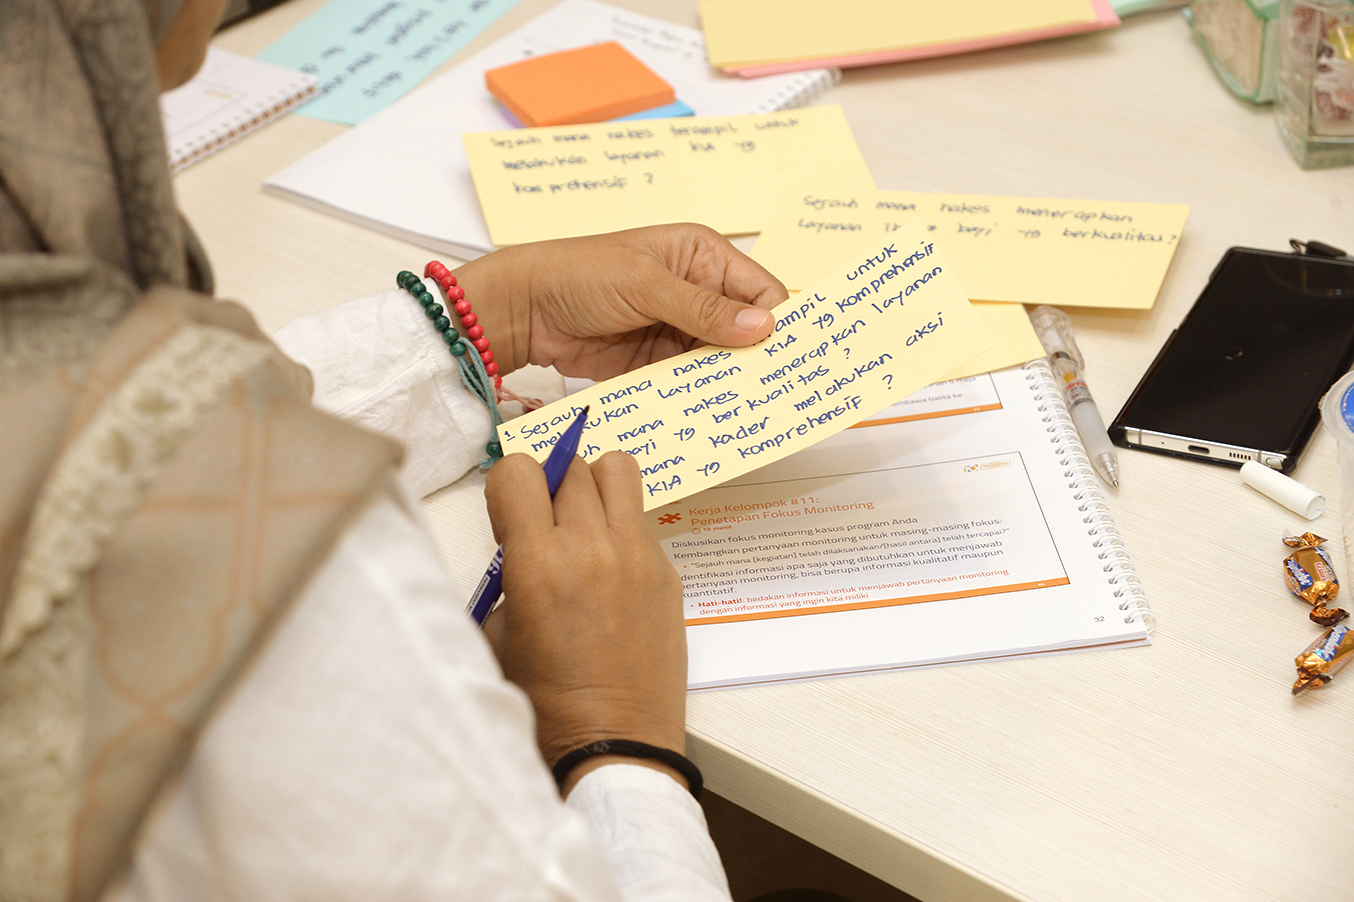 Sejauh mana nakes terampil untuk
melakukan layanan KIA yg
komprehensif ?
Sejauh mana nakes menerapkan
layanan bayi yg berkualitas?
1 Sejauh mana nakes ampil untuk
kukan layanan KIA yg komprehensif
uh mana nakes menerapkan layanan
bayi yg berkualitas ?
mana kader melakukan aksi
KIA yg komprehensif ?
mbawa balita ke
Kerja Kelompok #11:
Penetapan Fokus Monitoring
15 menit
Diskusikan fokus monitoring kasus program Anda
Kembangkan pertanyaan monitoring untuk masing-masing fokus:
• "Sejauh mana [kegiatan] telah dilaksanakan/[hasil antara] telah tercapai?"
dentifikasi informasi apa saja yang dibutuhkan untuk menjawab
pertanyaan monitoring, bisa berupa informasi kualitatif maupun
kuantitatif.
• Hati-hati!: bedakan informasi untuk menjawab pertanyaan monitoring
dengan informasi yang ingin kita miliki
32